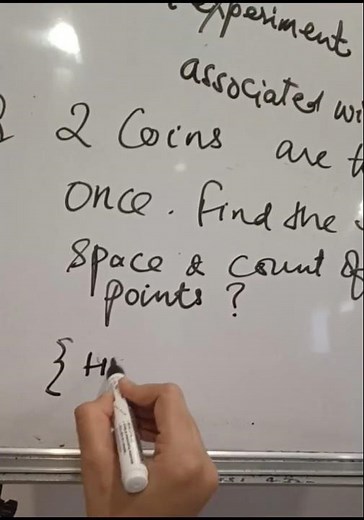 experiment
associated wi
2 Coins are t
once. Find the
Space & count of
points?
{ H